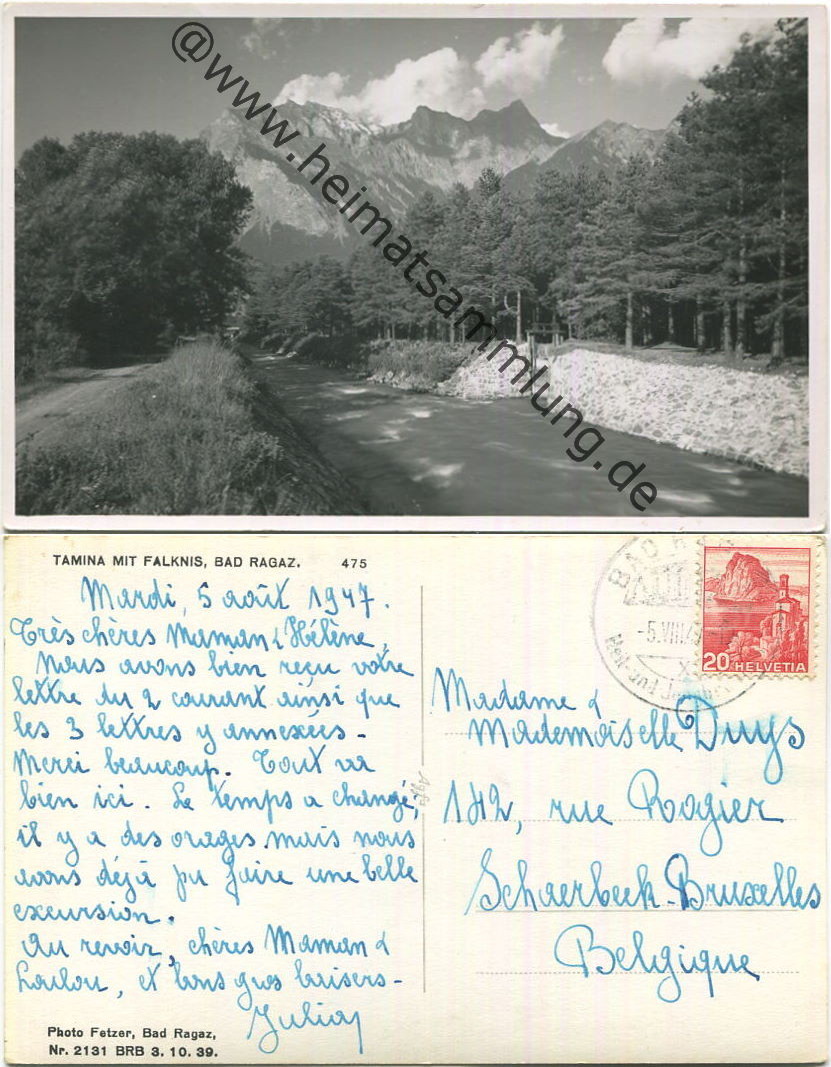 @www.heimatsammlung.de
TAMINA MIT FALKNIS, BAD RAGAZ. 475
Mardi, 5 août 1947.
Très chères Maman & Hélène,
Nous avons bien reçu votre
lettre du 2 courant ainsi que
les 3 lettres y annexées.
Merci beaucoup. Tout va
bien ici. Le temps a changé,
il y a des orages mais nous
avons déjà pu faire une belle
excursion.
Au revoir, chères Maman &
Loulou, et bons gros baisers-
Photo Fetzer, Bad Ragaz,
Nr. 2131 BRB 3. 10. 39.
BAD RAG
-5.VIII.
20 HELVETIA
Madame &
Mademoiselle Duys
142, rue Rogier
Schaerbeek-Bruxelles
Belgique